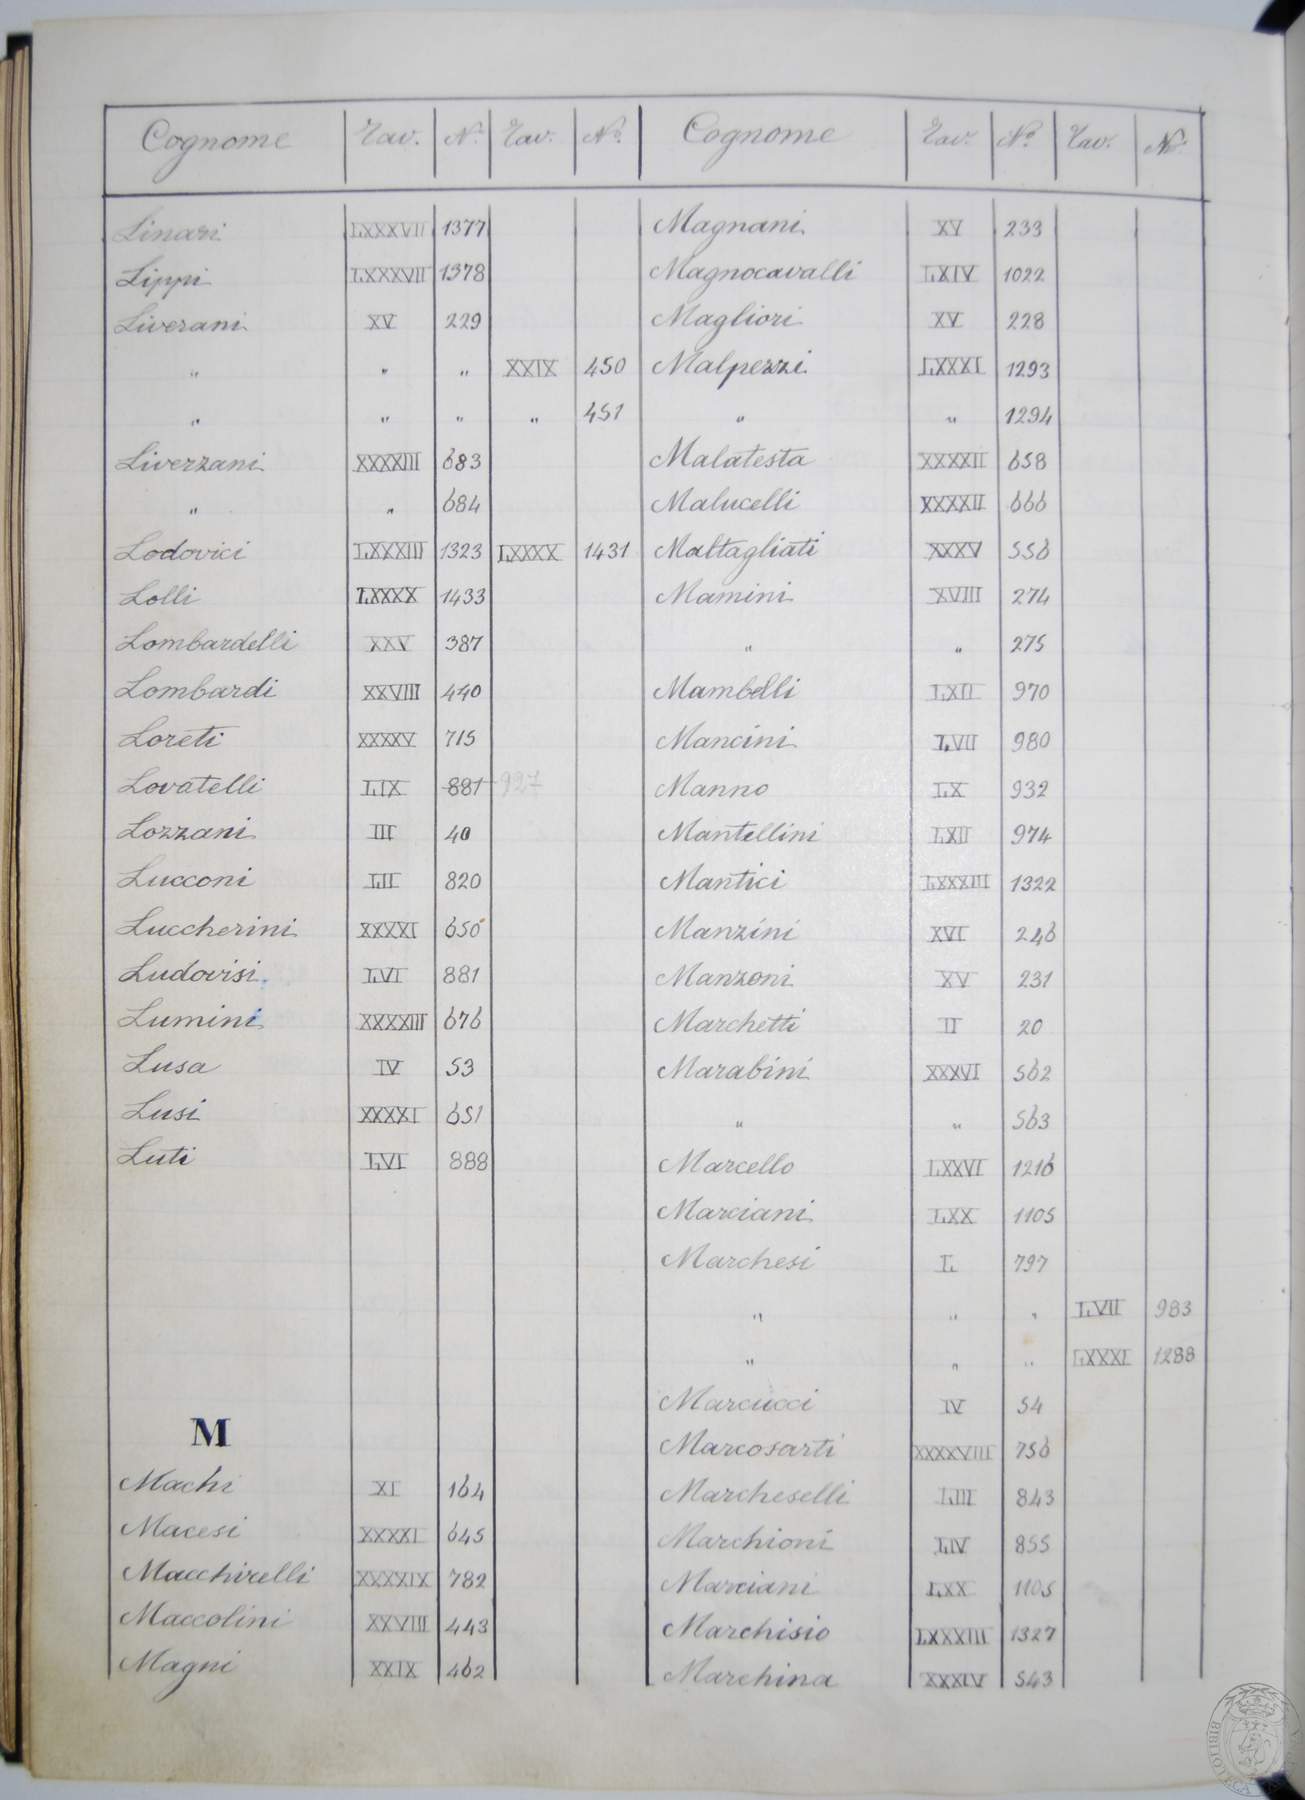 Cognome Tav. N.º Tav. N.º
Linari LXXXVII 1377
Lippi LXXXVII 1378
Liverani XV 229
" " " XXIX 450
" " " " 451
Liverzani XXXXIII 683
" " 684
Lodovici LXXXIII 1323 LXXXX 1431
Lolli LXXXX 1433
Lombardelli XXV 387
Lombardi XXVIII 440
Loreti XXXXV 715
Lovatelli LIX 881 927
Lozzani III 40
Lucconi LII 820
Luccherini XXXXI 650
Ludovisi LVI 881
Lumini XXXXIII 676
Lusa IV 53
Lusi XXXXI 651
Luti LVI 888
M
Machi XI 164
Macesi XXXXI 645
Macchirelli XXXXIX 782
Maccolini XXVIII 443
Magni XXIX 462
Cognome Tav. N.º Tav. N.º
Magnani XV 233
Magnocavalli LXIV 1022
Magliori XV 228
Malpezzi LXXXI 1293
" " 1294
Malatesta XXXXII 658
Malucelli XXXXII 666
Maltagliati XXXV 556
Mamini XVIII 274
" " 275
Mambelli LXII 970
Mancini LVII 980
Manno LX 932
Mantellini LXII 974
Mantici LXXXIII 1322
Manzini XVI 246
Manzoni XV 231
Marchetti II 20
Marabini XXXVI 562
" " 563
Marcello LXXVI 1216
Marciani LXX 1105
Marchesi L 797
" " " LVII 983
" " " LXXXI 1288
Marcucci IV 54
Marcosarti XXXXVIII 756
Marcheselli LIII 843
Marchioni LIV 855
Marciani LXX 1105
Marchisio LXXXIII 1327
Marchina XXXIV 543